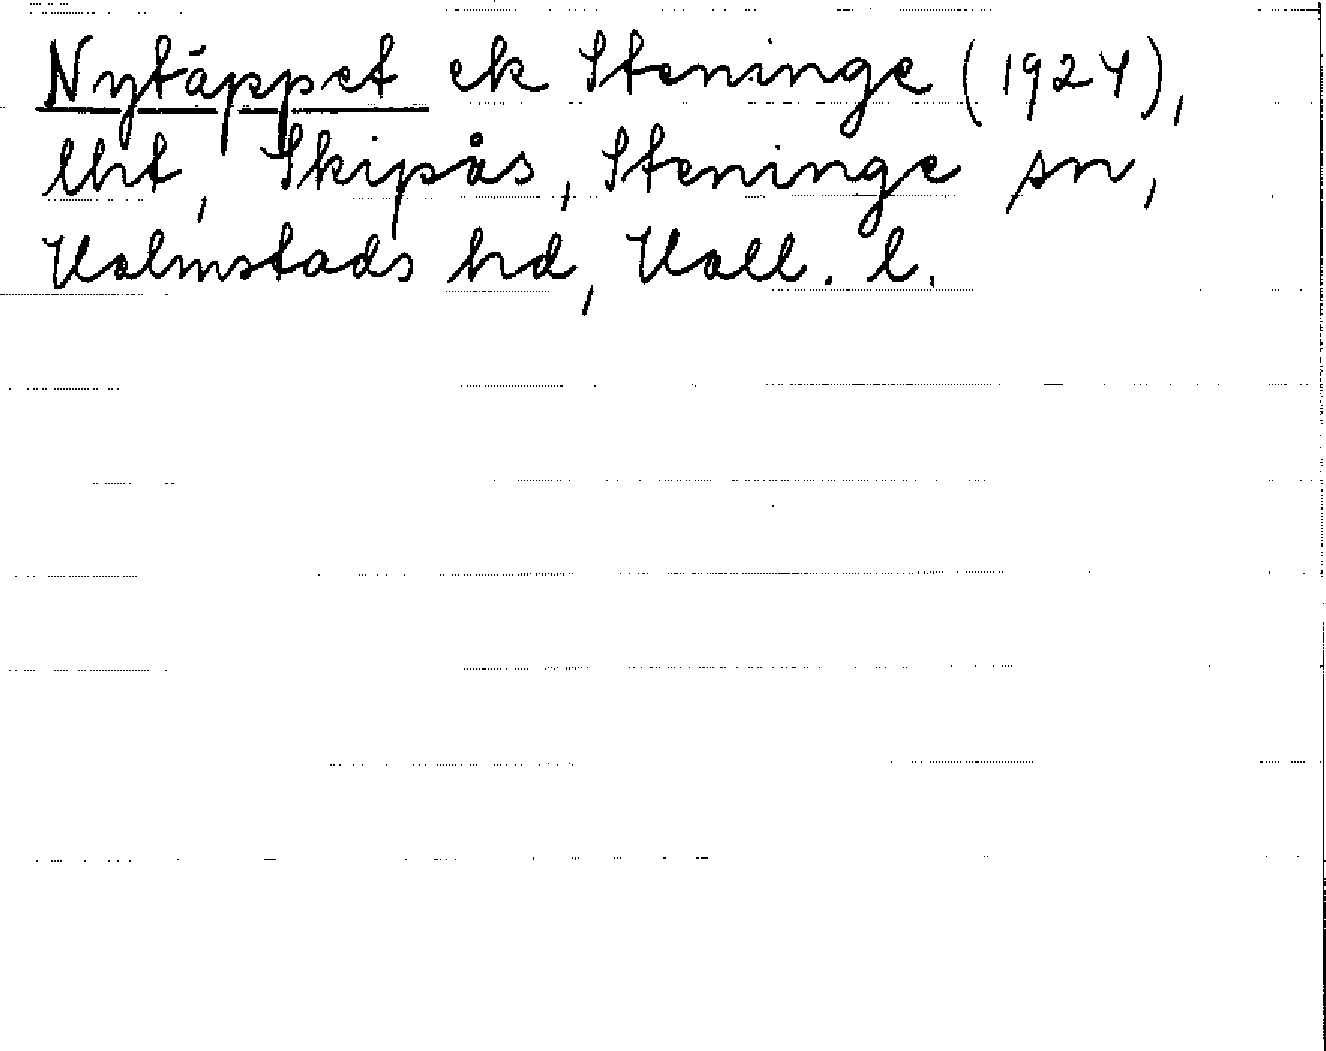 Nytäppet ek Steninge (1924),
lht, Skipås, Steninge sn,
Halmstads hd, Hall. l.